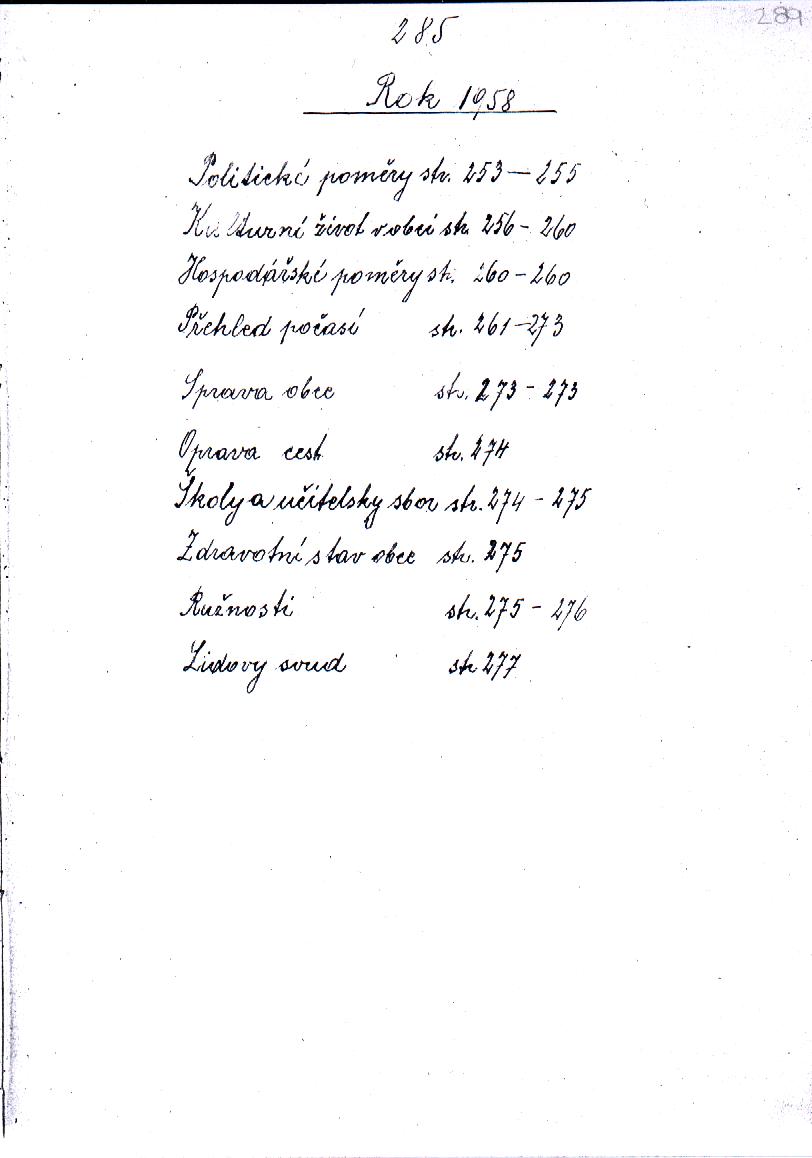 289
285
Rok 1958
Politické poměry str. 253 — 255
Kulturní život v obci str. 256 - 260
Hospodářské poměry str. 260 - 260
Přehled počasí str. 261 - 273
Sprava obce str. 273 - 273
Oprava cest str. 274
Školy a učitelsky sbor str. 274 - 275
Zdravotní stav obce str. 275
Ružnosti str. 275 - 276
Lidovy soud str 277